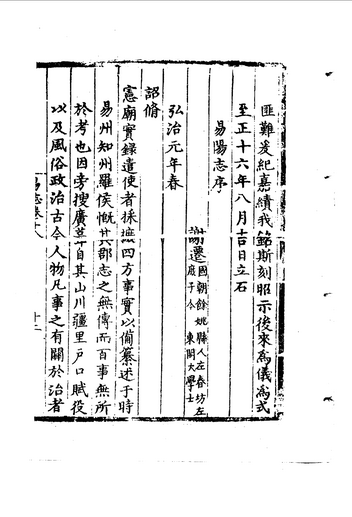 匪難爰紀嘉績我銘斯刻昭示後來為儀為式
至正十六年八月吉日立石
易陽志序
謝遷國朝餘姚縣人左春坊左
庶子今東閣大學士
弘治元年春
詔脩
憲廟實錄遣使者採摭四方事實以備纂述于時
易州知州羅侯慨其郡志之無傳而百事無所
於考也因旁搜廣萃自其山川疆里戶口賦役
以及風俗政治古今人物凡事之有關於治者
易志卷十八
十二